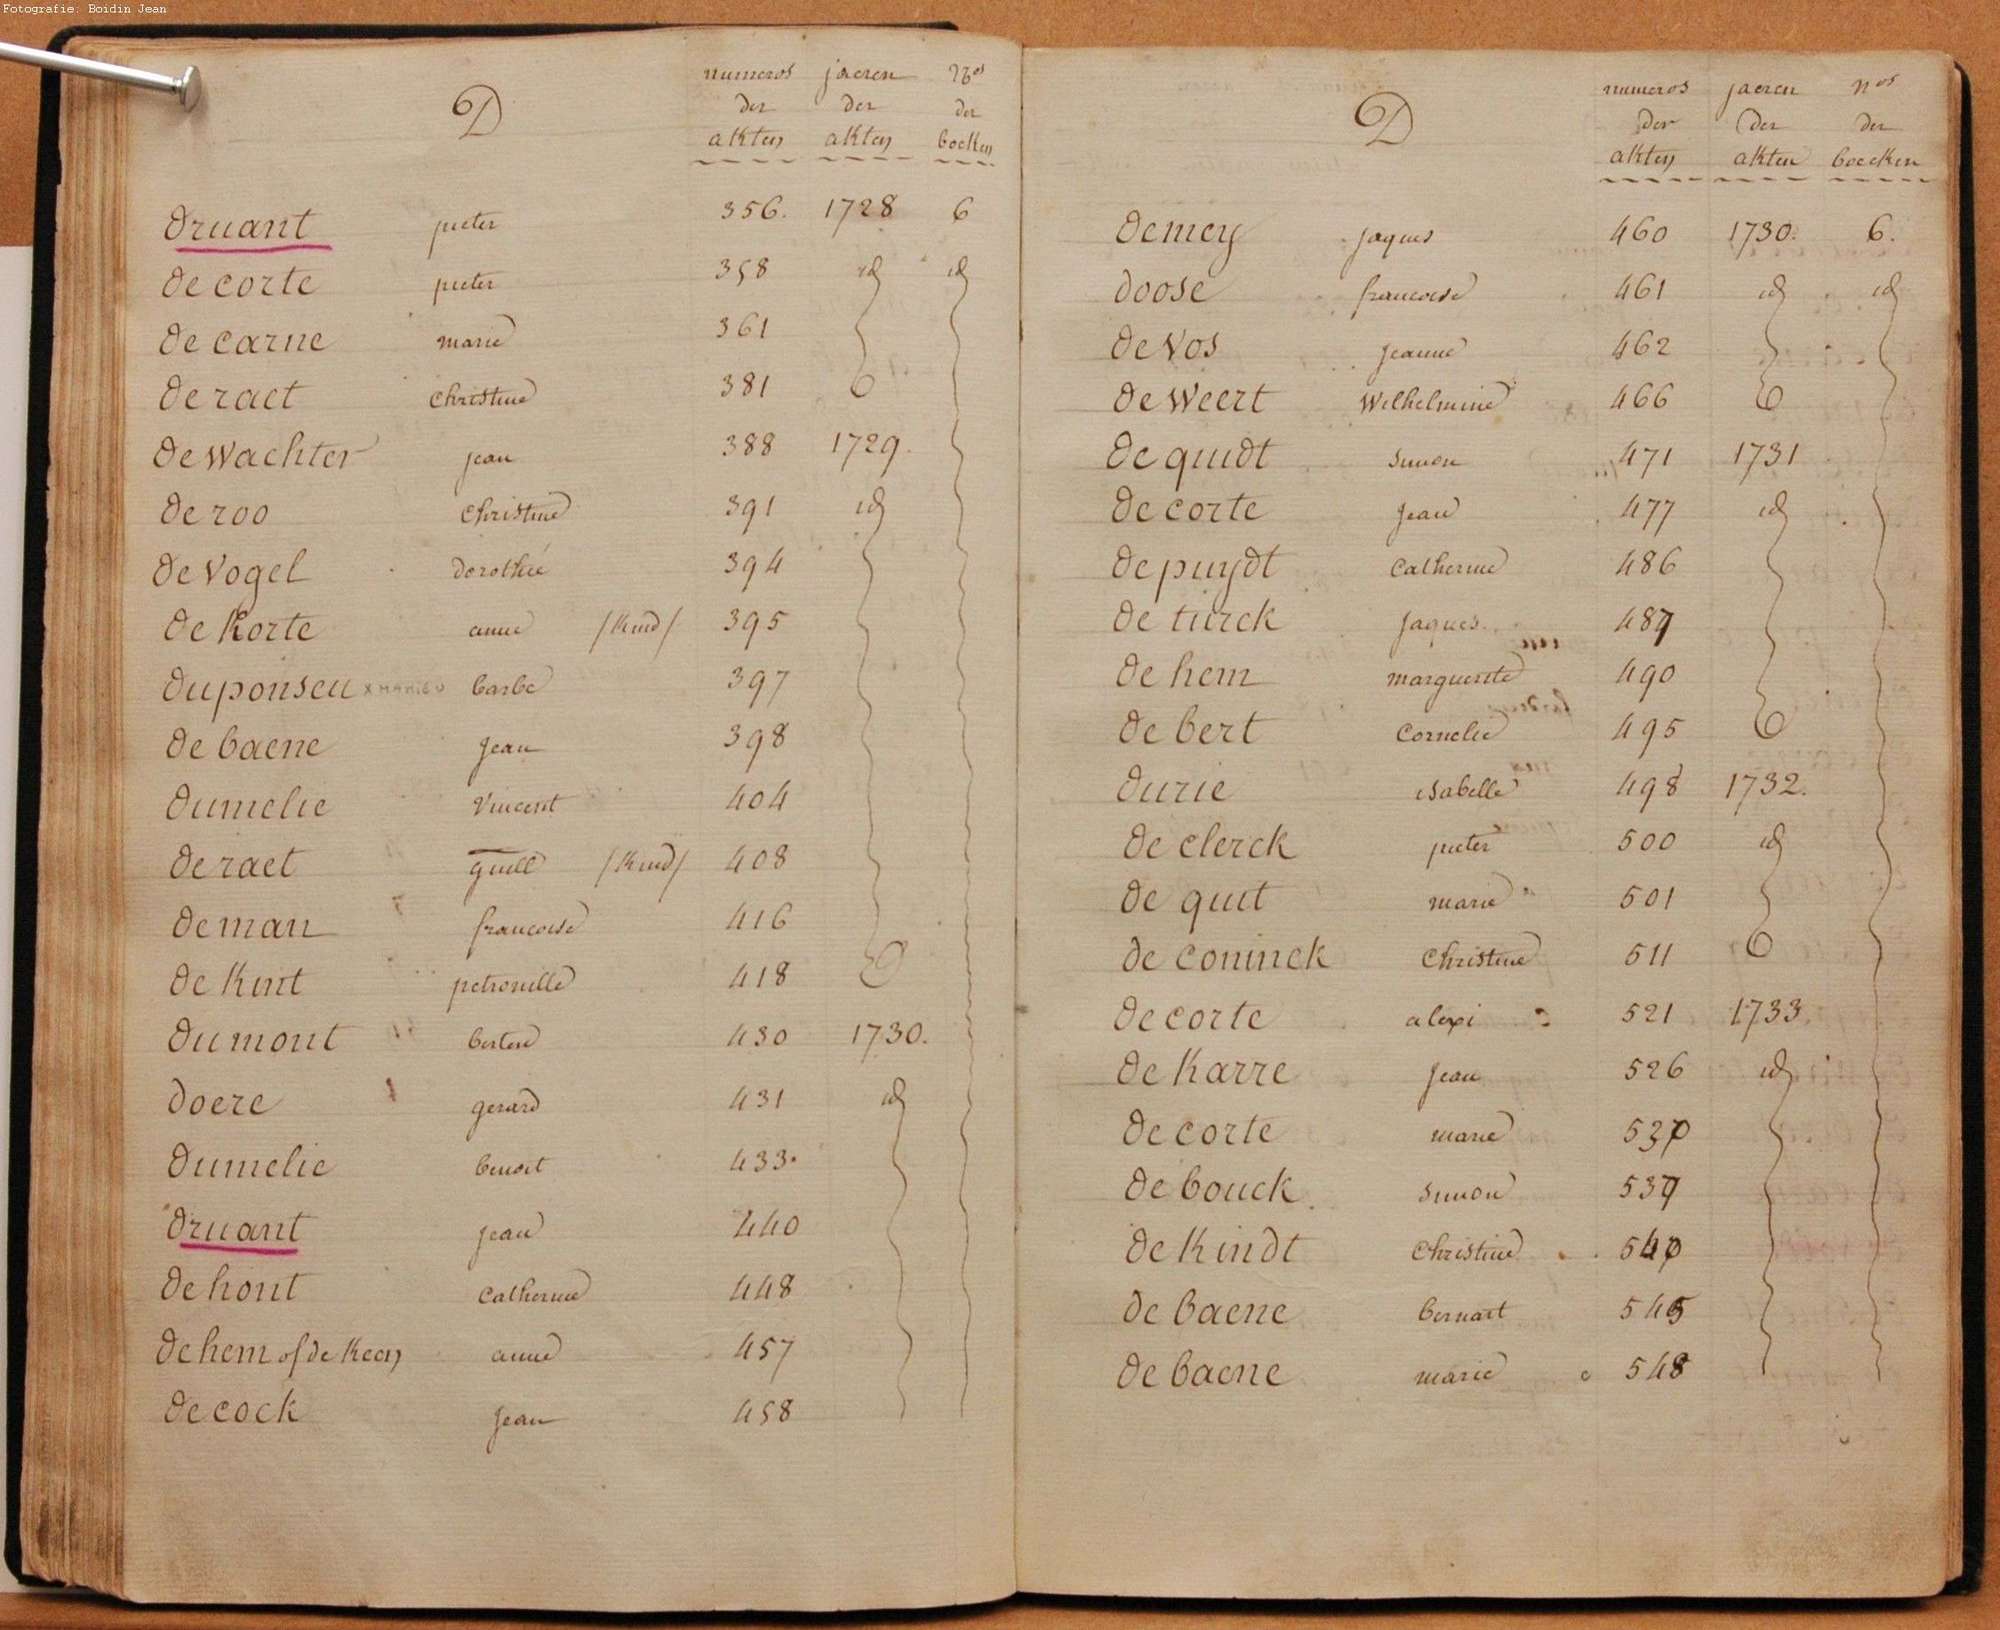 Fotografie: Boidin Jean
D
numeros der akten
jaeren der akten
Nos der boeken
druant pieter 356. 1728 6
de corte pieter 358 id id
de carne marie 361
de raet Christine 381
de wachter jean 388 1729.
de roo Christine 391 id
de vogel dorothée 394
de Korte anne /Kind/ 395
duponseu barbe 397
de baene jean 398
dumelie vincent 404
de raet guill /Kind/ 408
de man francoise 416
de Kint petronille 418
dumont 430 1730.
doere gerard 431 id
dumelie benoit 433.
druant jean 440
de hont Catherine 448
de hem of de Keen anne 457
de cock jean 458
D
numeros der akten
jaeren der akten
nos der boecken
demey jaques 460 1730. 6.
doose francoise 461 id id
de vos jeanne 462
de weert Wilhelmine 466
de quidt simon 471 1731
de corte jean 477 id
de puydt Catherine 486
de turck jaques. 487
de hem marguerite 490
de bert Cornelie 495
durie isabelle 498 1732.
de clerck pieter 500 id
de quit marie 501
de coninck Christine 511
de corte alexi 521 1733.
de Karre jean 526 id
de corte marie
de bouck simon
de Kindt Christine
de baene bernart
de baene marie 548